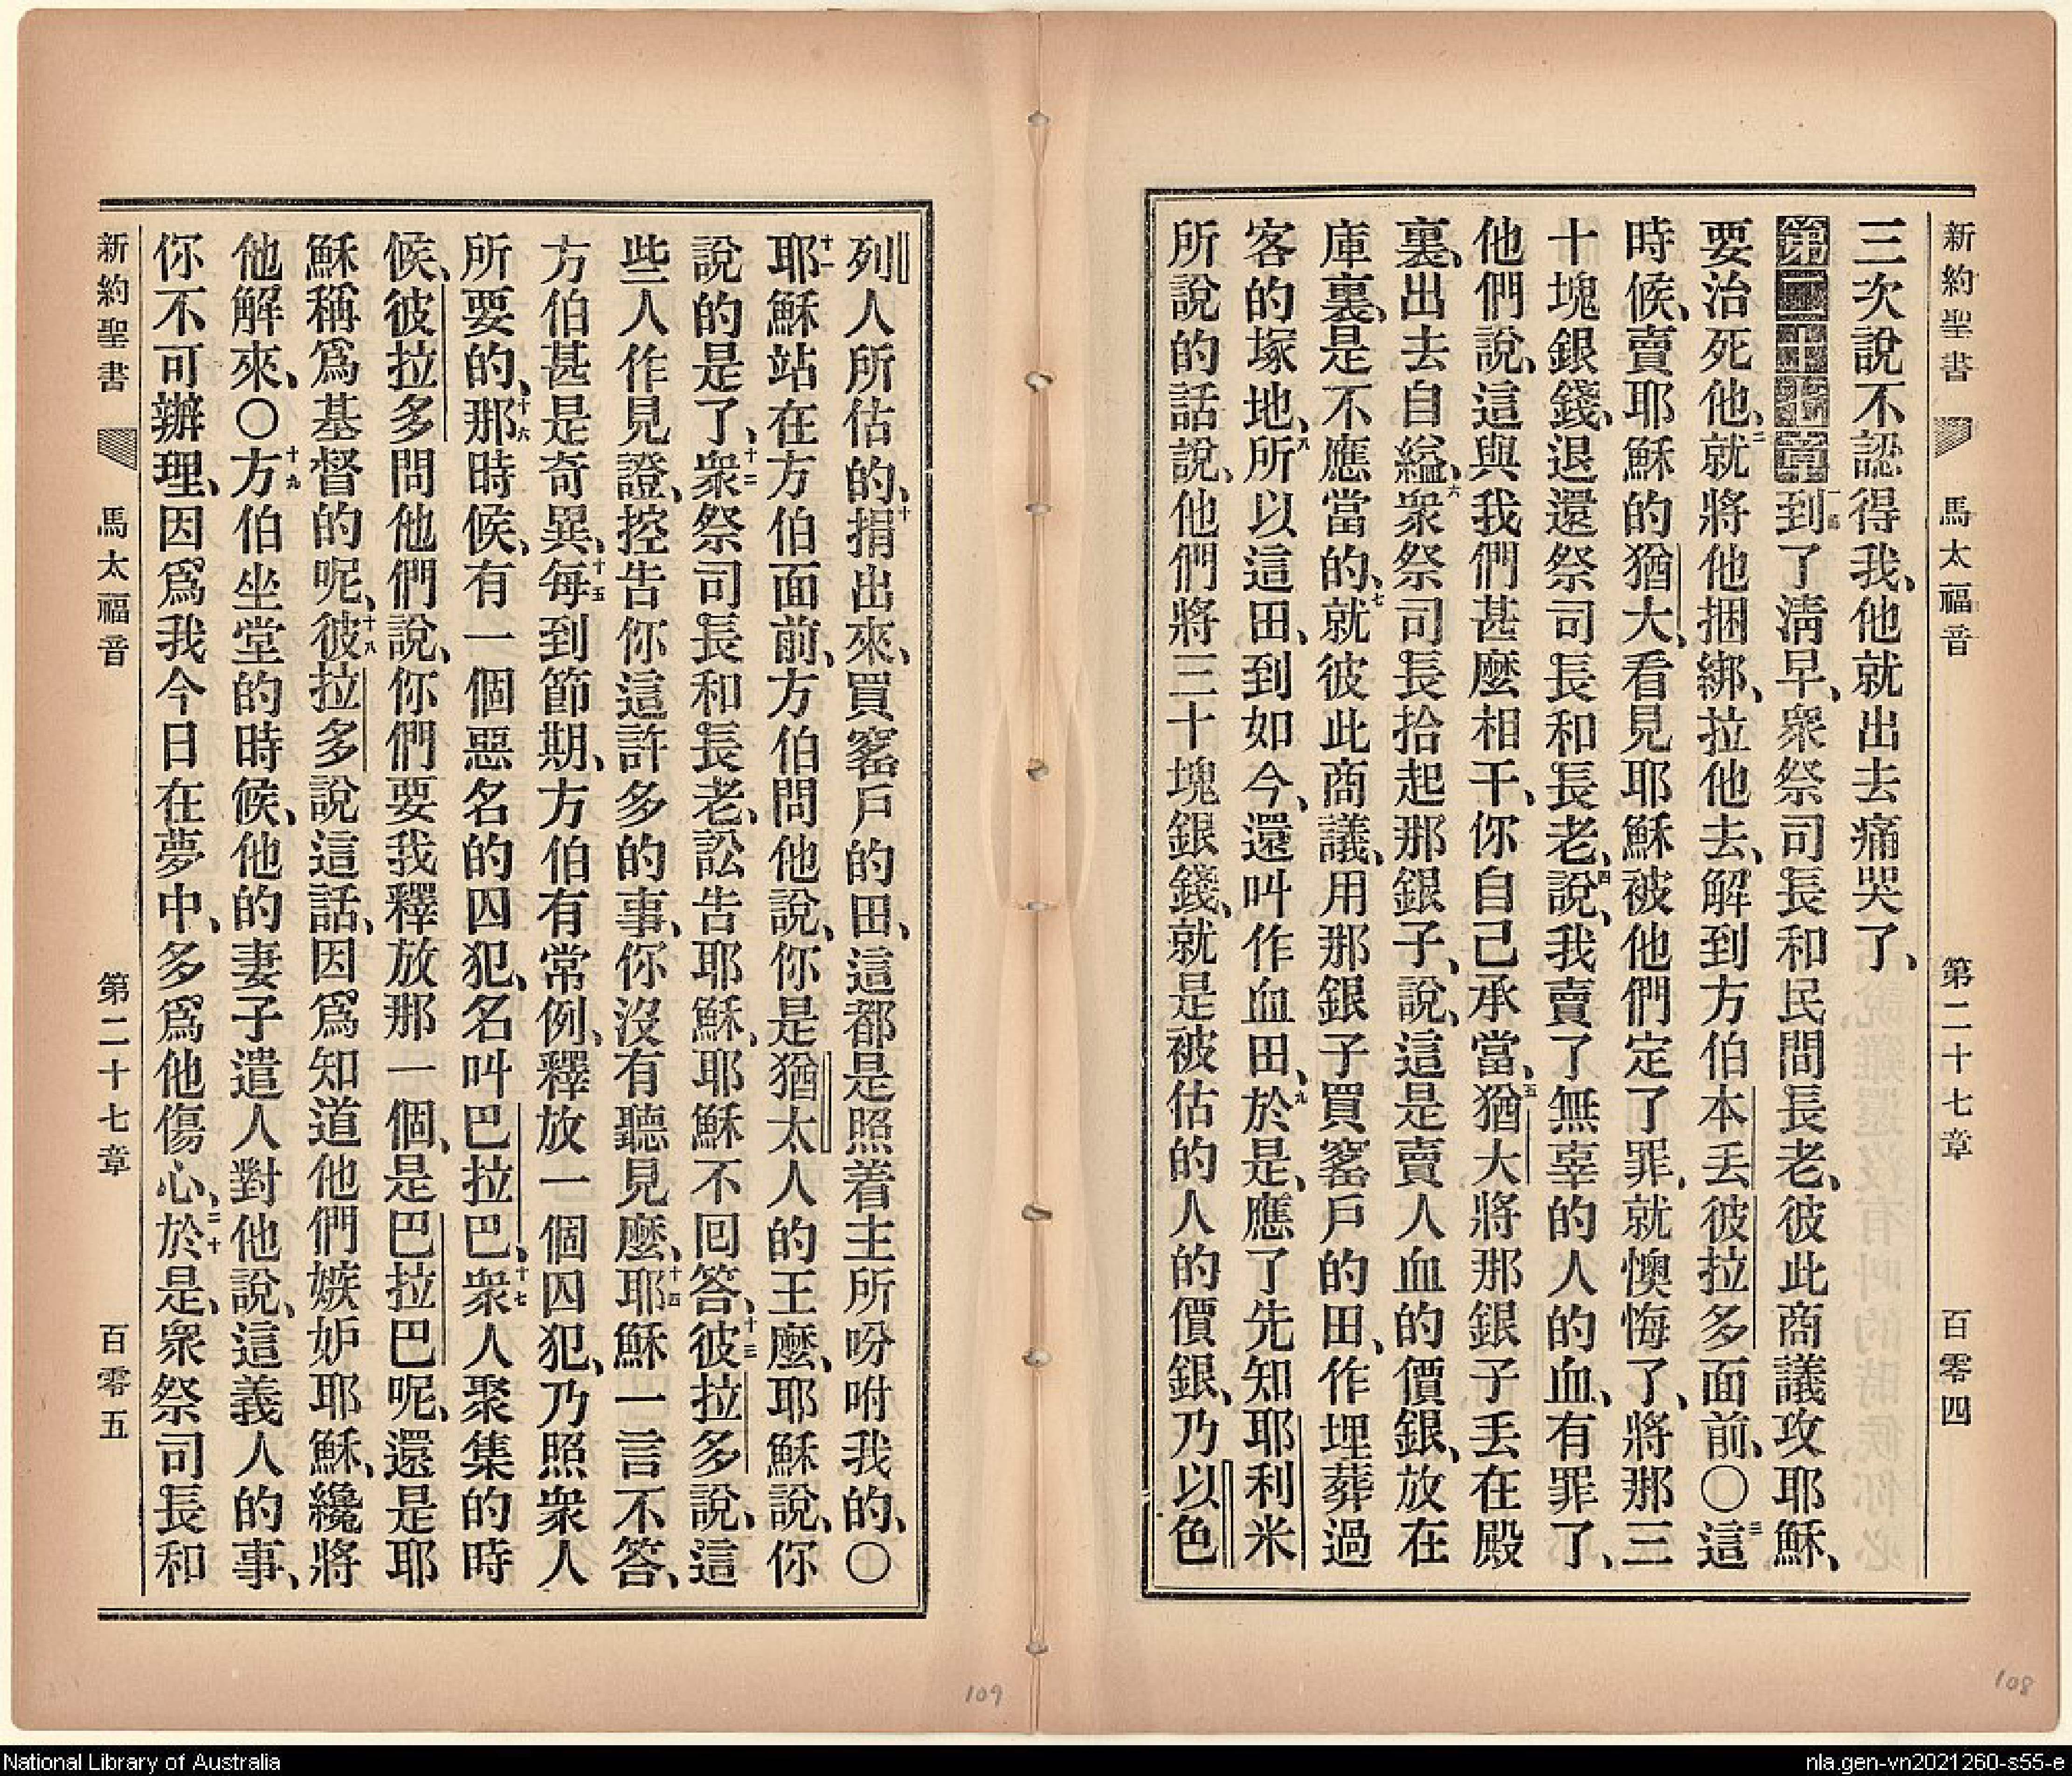 新約聖書 馬太福音 第二十七章 百零四
三次說不認得我、他就出去痛哭了、
第二十七章 一節 到了清早、衆祭司長和民間長老、彼此商議攻耶穌、
要治死他、二 就將他捆綁、拉他去、解到方伯本丟彼拉多面前、〇三 這
時候、賣耶穌的猶大、看見耶穌被他們定了罪、就懊悔了、將那三
十塊銀錢、退還祭司長和長老、四 說、我賣了無辜的人的血、有罪了、
他們說、這與我們甚麼相干、你自己承當、五 猶大將那銀子丟在殿
裏、出去自縊、六 衆祭司長拾起那銀子、說、這是賣人血的價銀、放在
庫裏、是不應當的、七 就彼此商議、用那銀子買窰戶的田、作埋葬過
客的塚地、八 所以這田、到如今、還叫作血田、九 於是、應了先知耶利米
所說的話說、他們將三十塊銀錢、就是被估的人的價銀、乃以色
列人所估的、十 捐出來、買窰戶的田、這都是照着主所吩咐我的、〇
十一 耶穌站在方伯面前、方伯問他說、你是猶太人的王麼、耶穌說、你
說的是了、十二 衆祭司長和長老、訟告耶穌、耶穌不回答、十三 彼拉多說、這
些人作見證、控告你這許多的事、你沒有聽見麼、十四 耶穌一言不答、
方伯甚是奇異、十五 每到節期、方伯有常例、釋放一個囚犯、乃照衆人
所要的、十六 那時候、有一個惡名的囚犯、名叫巴拉巴、十七 衆人聚集的時
候、彼拉多問他們說、你們要我釋放那一個、是巴拉巴呢、還是耶
穌稱爲基督的呢、十八 彼拉多說這話、因爲知道他們嫉妒耶穌、纔將
他解來、〇十九 方伯坐堂的時候、他的妻子遣人對他說、這義人的事、
你不可辦理、因爲我今日在夢中、多爲他傷心、二十 於是、衆祭司長和
新約聖書 馬太福音 第二十七章 百零五
109
108
National Library of Australia
nla.gen-vn2021260-s55-e